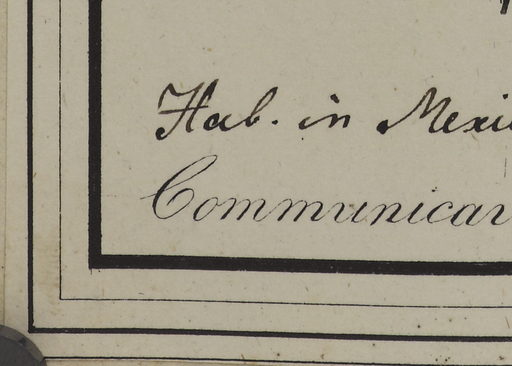 Hab. in Mexi
Communicav